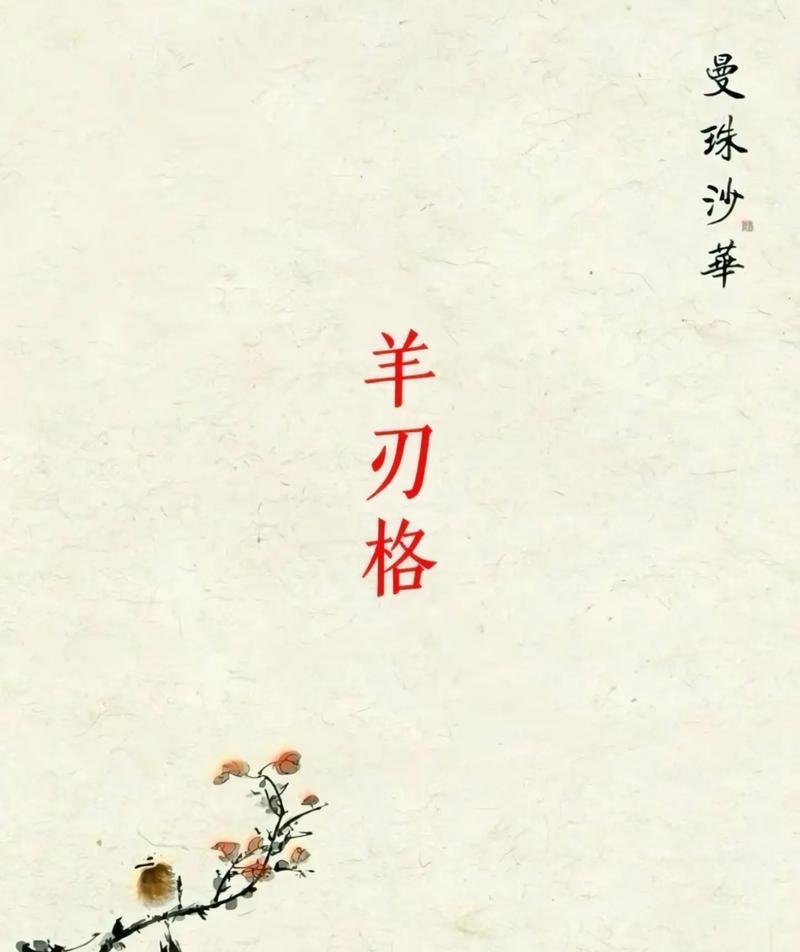 曼珠沙華
羊刃格